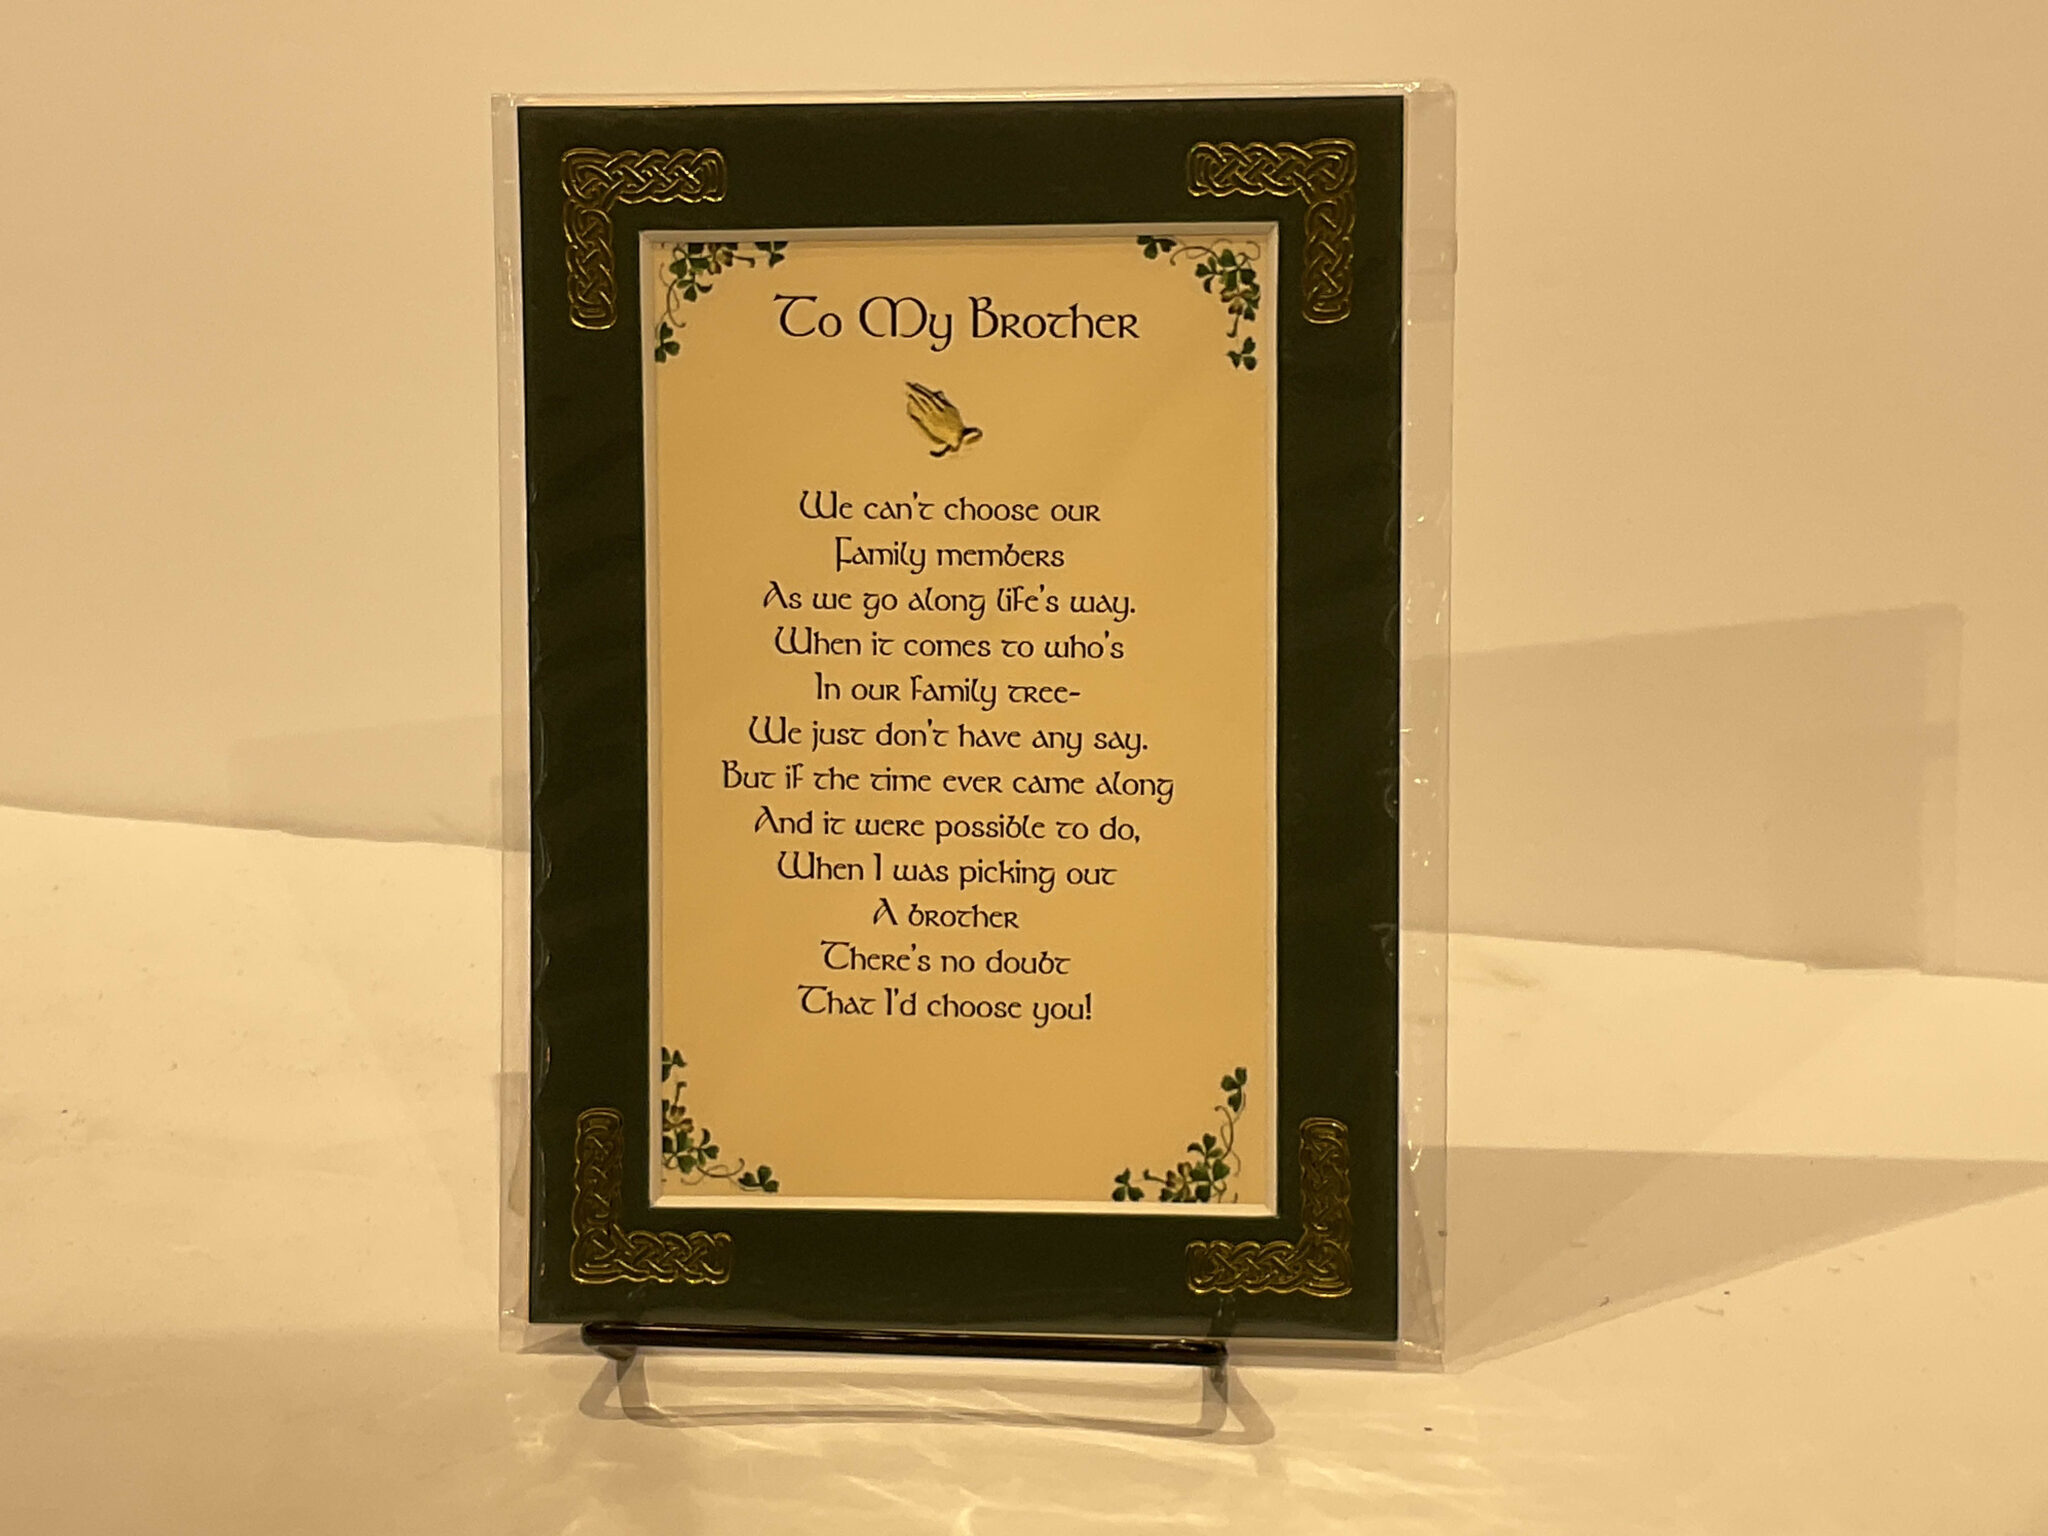 To My Brother
We can't choose our
Family members
As we go along life's way.
When it comes to who's
In our family tree-
We just don't have any say.
But if the time ever came along
And it were possible to do,
When I was picking out
A brother
There's no doubt
That I'd choose you!